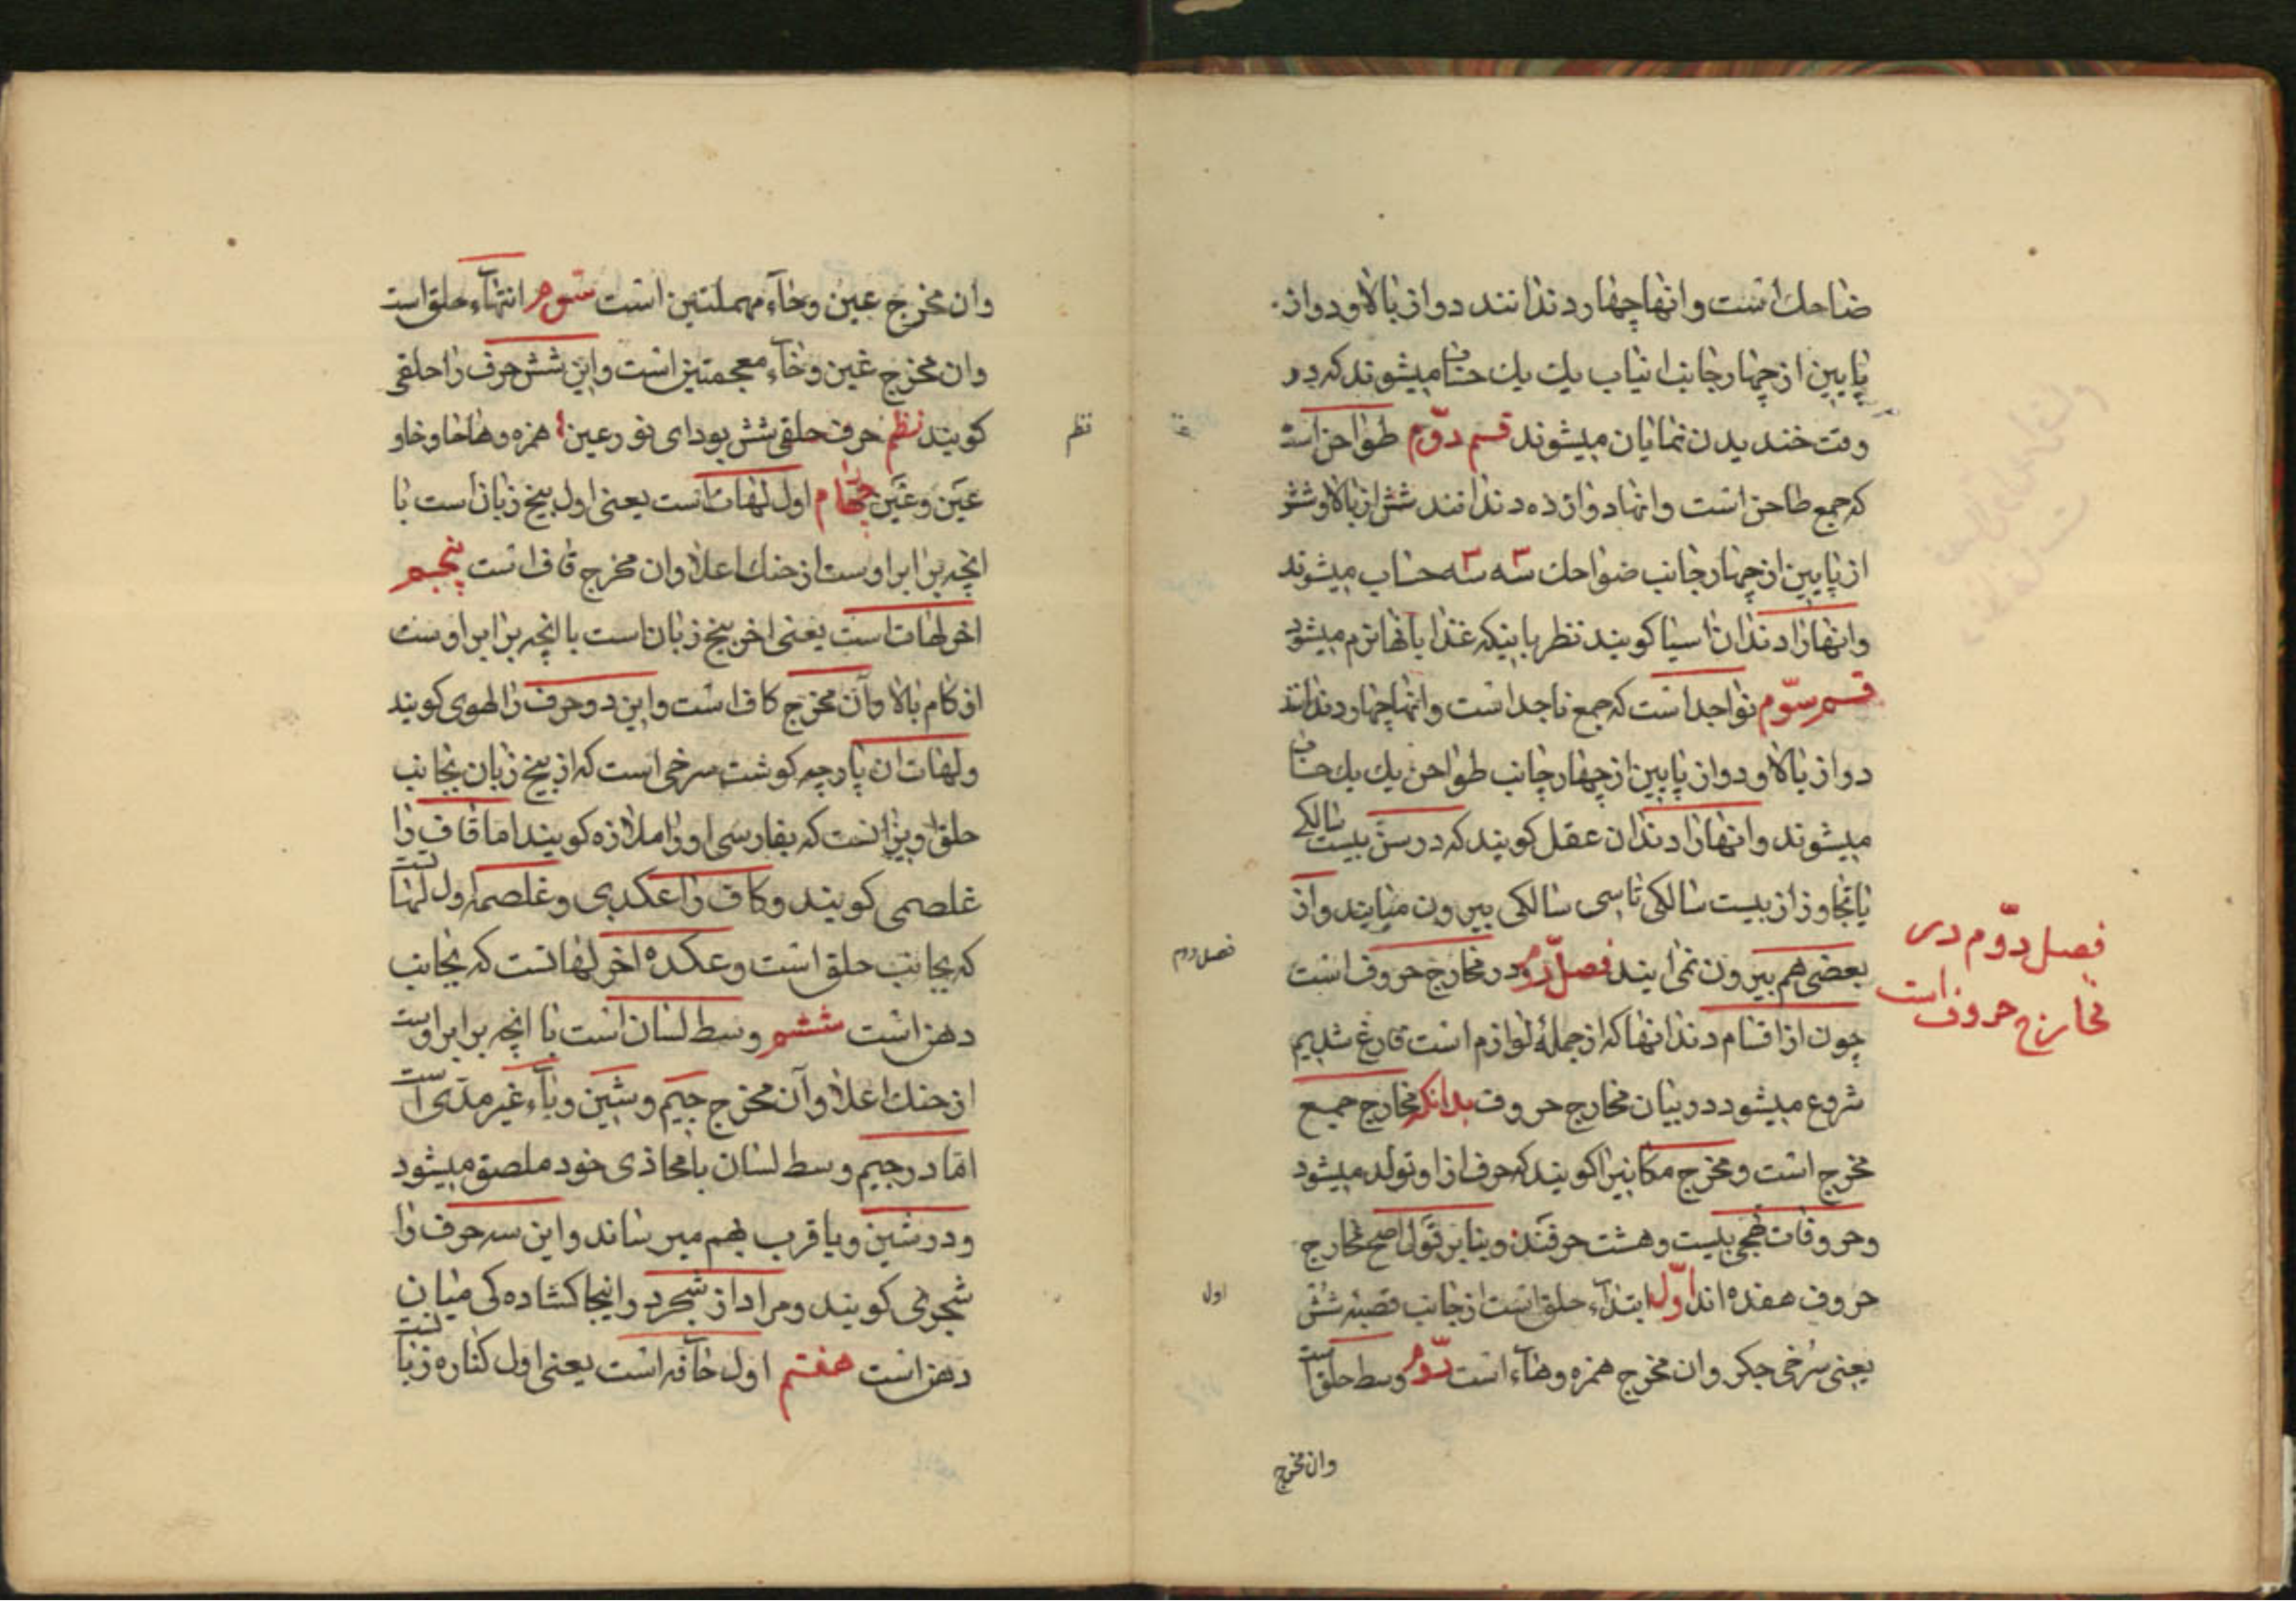 ضاحك است و انها چهار دندانند دو از بالا و دو از
پایین از چهار جانب انیاب یك یك حساب میشوند که در
وقت خندیدن نمایان میشوند قسم دوّم طواحن است
که جمع طاحن است و انها دوازده دندانند شش از بالا و شش
از پایین از چهار جانب ضواحك سه سه حساب میشوند
و انها را دندان اسیا کویند نظر باینکه غذا بانها نرم میشود
قسم سوّم نواجد است که جمع ناجد است و انها چهار دندانند
دو از بالا و دو از پایین از چهار جانب طواحن یك یك حساب
میشوند و انها را دندان عقل کویند که در سن بیست سالکی
یا تجاوز از بیست سالکی تا سی سالکی بیرون میایند و از
بعضی هم بیرون نمی ایند فصل دوم در مخارج حروف است
چون از اقسام دندانها که از جملهٔ لوازم است فارغ شدیم
شروع میشود در بیان مخارج حروف بدانکه مخارج جمیع
مخرج است و مخرج مکانیرا کویند که حرف از او تولد میشود
و حروفات تهجی بیست و هشت حرفند و بنابر قول اصح مخارج
حروف هفده اند اوّل ابتدآء حلق است از جانب قصبه شش
یعنی سرخی جکر و ان مخرج همزه و هآء است دوّم وسط حلق است
وان مخرج
فصل دوّم در
مخارج حروف است
فصل دوم
اول
وان مخرج عین و حآء مهملتین است سوم انتهآء حلق است
وان مخرج غین و خآء معجمتین است و این شش حرف را حلقی
کویند نظم حرف حلقی شش بود ای نور عین همزه و ها حا و خا و
عین و غین چهارم اول لهات است یعنی اول بیخ زبان است با
انچه برابر اوست از حنك اعلا وان مخرج قاف است پنجم
اخر لهات است یعنی اخر بیخ زبان است با انچه برابر اوست
از کام بالا و آن مخرج کاف است و این دو حرف را لهوی کویند
و لهات ان پارچه کوشت سرخی است که از بیخ زبان بجانب
حلق اویزانست که بفارسی او را ملازه کویند اما قاف را
غلصمی کویند و کاف را عکدی و غلصمه اول لهاتست
که بجانب حلق است و عکده اخر لهاتست که بجانب
دهن است ششم وسط لسان است با انچه برابر اوست
از حنك اعلا و آن مخرج جیم و شین و یآء غیر مدّی است
امّا در جیم وسط لسان با محاذی خود ملصق میشود
و در شین و یا قرب بهم میرساند و این سه حرف را
شجری کویند و مراد از شجر در اینجا کشاده کی میان
دهن است هفتم اول حافه است یعنی اول کناره زبانست
نظم